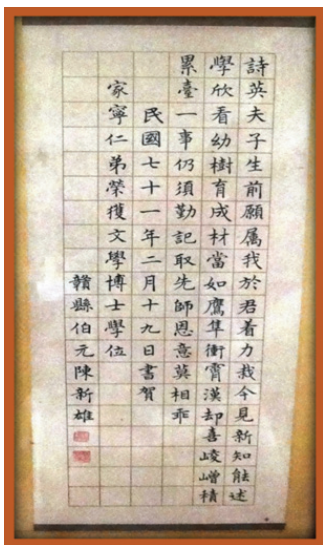 詩英夫子生前願属我於君着力栽今見新知能述
學欣看幼樹育成材當如鷹隼衝霄漢却喜崚嶒積
累臺一事仍須勤記取先師恩意莫相乖
民國七十一年二月十九日書賀
家寧仁弟榮獲文學博士學位
贛縣伯元陳新雄